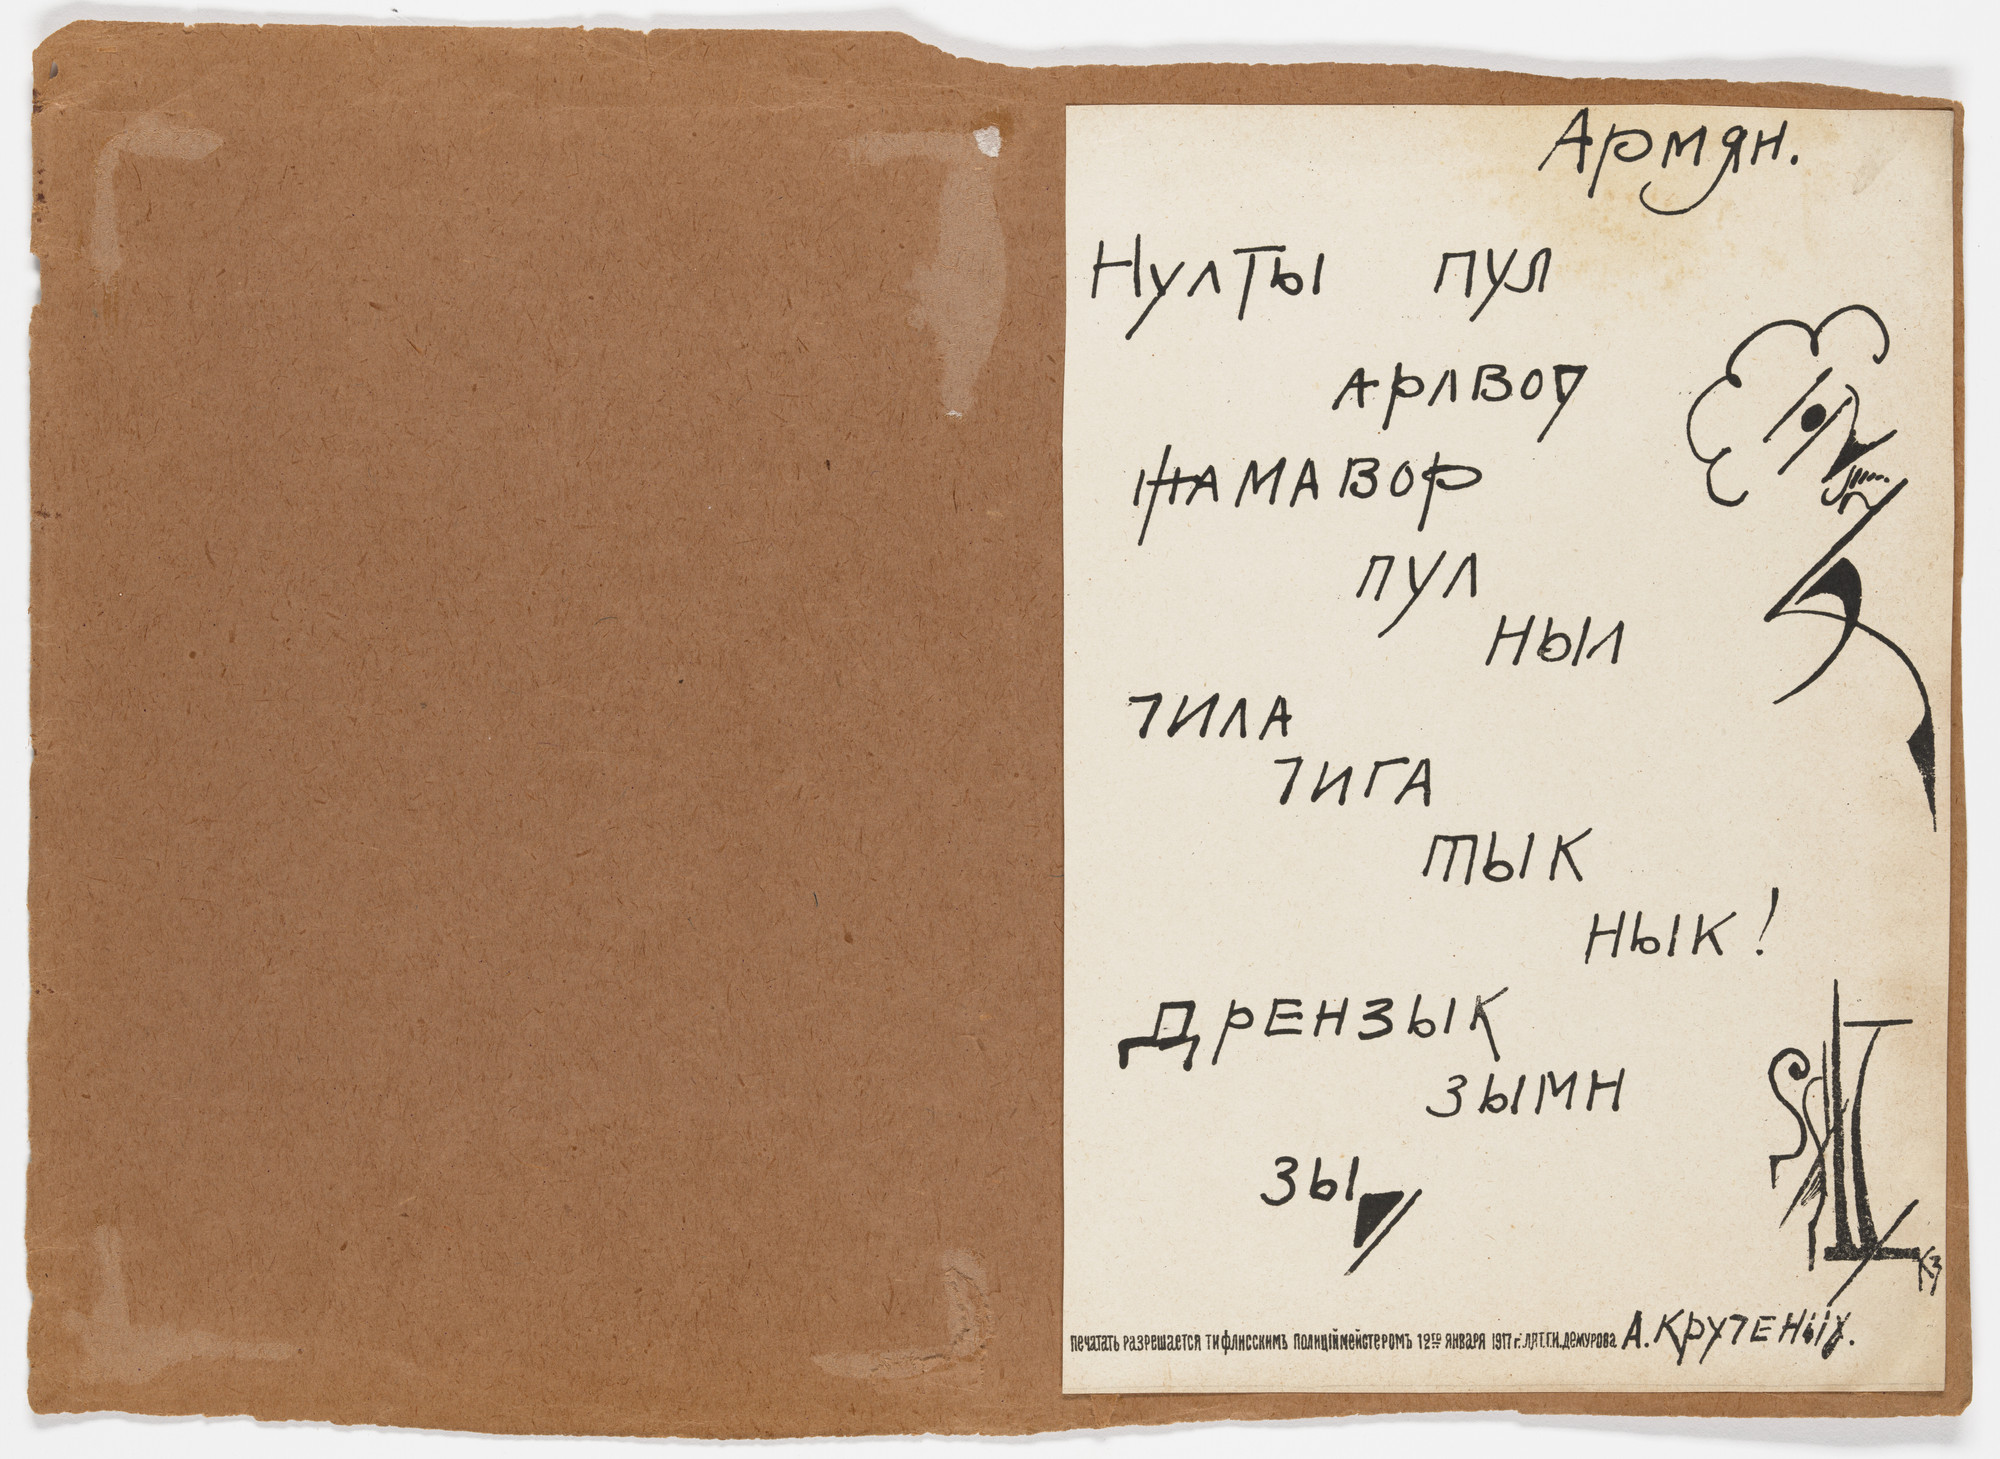 Армян.
Нулты пул
арлвоч
жамавор
пул
ныл
тила
тига
тык
нык!
Дрензык
зымн
зы
КЗ
печатать разрешается тифлисскимъ полиціймейстеромъ 12го января 1917 г.
А. Крученыіх.